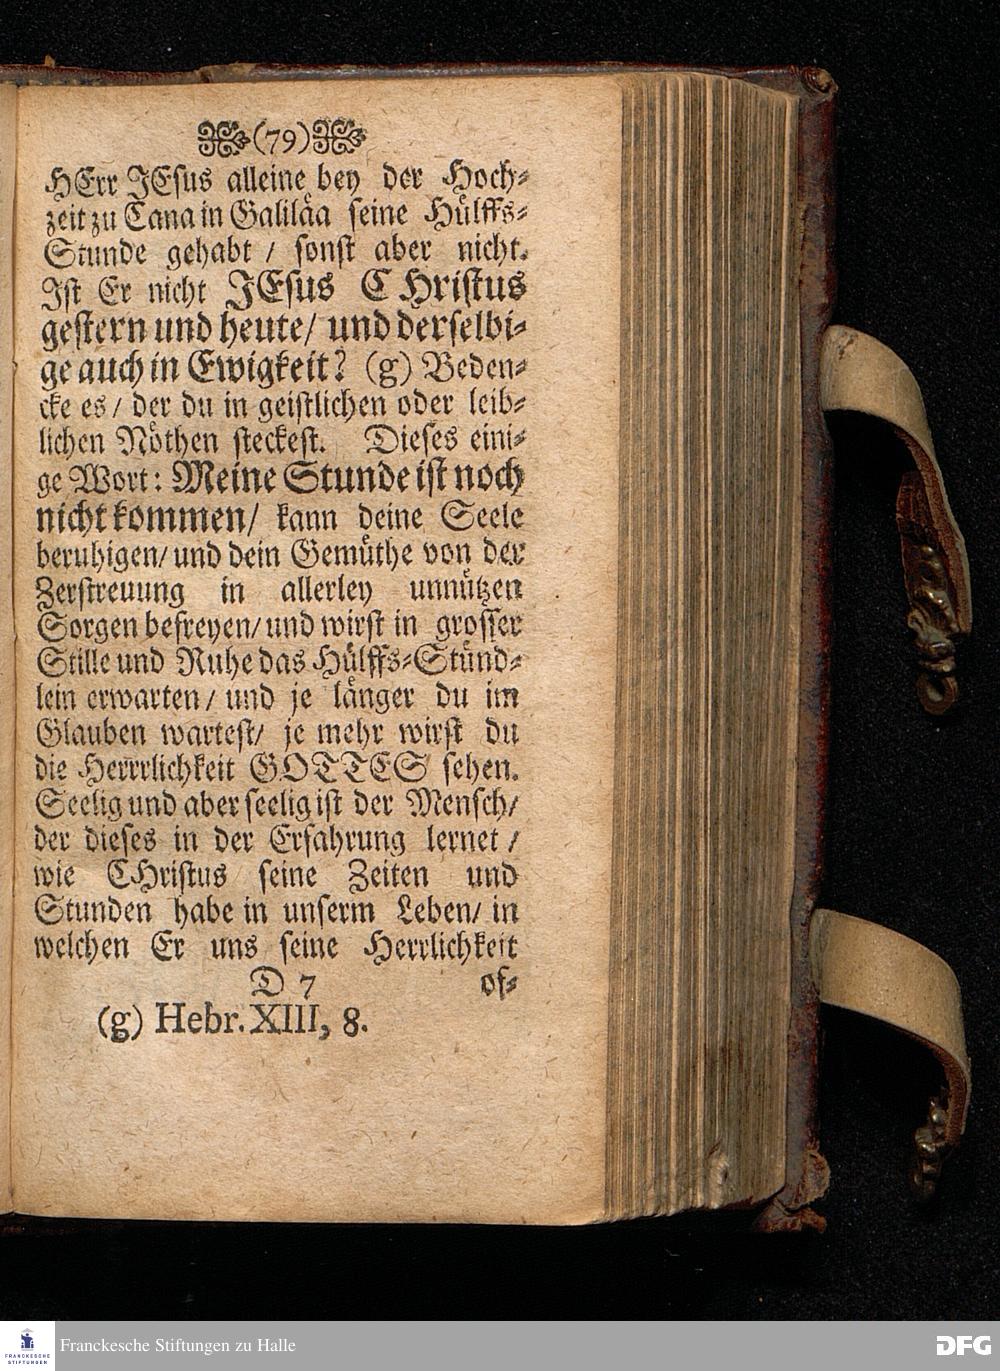 (79)
HErr JEsus alleine bey der Hoch-
zeit zu Cana in Galiläa seine Hülffs-
Stunde gehabt / sonst aber nicht.
Ist Er nicht JEsus CHristus
gestern und heute/ und derselbi-
ge auch in Ewigkeit? (g) Beden-
cke es / der du in geistlichen oder leib-
lichen Nöthen steckest. Dieses eini-
ge Wort: Meine Stunde ist noch
nicht kommen/ kann deine Seele
beruhigen/ und dein Gemüthe von der
Zerstreuung in allerley unnützen
Sorgen befreyen/ und wirst in grosser
Stille und Ruhe das Hülffs-Stünd-
lein erwarten / und je länger du im
Glauben wartest/ je mehr wirst du
die Herrrlichkeit GOTTES sehen.
Seelig und aber seelig ist der Mensch/
der dieses in der Erfahrung lernet /
wie CHristus seine Zeiten und
Stunden habe in unserm Leben/ in
welchen Er uns seine Herrlichkeit
D 7 of-
(g) Hebr. XIII, 8.
FRANCKESCHE
STIFTUNGEN
Franckesche Stiftungen zu Halle
DFG